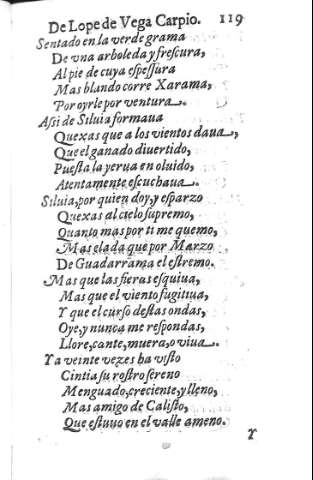 De Lope de Vega Carpio. 119
Sentado en la verde grama
De vna arboleda y frescura,
Al pie de cuya espessura
Mas blando corre Xarama,
Por oyrle por ventura.
Assi de Siluia formaua
Quexas que a los vientos daua,
Que el ganado diuertido,
Puesta la yerua en oluido,
Atentamente escuchaua.
Siluia, por quien doy, y esparzo
Quexas al cielo supremo,
Quanto mas por ti me quemo,
Mas elada que por Marzo
De Guadarrama el estremo.
Mas que las fieras esquiua,
Mas que el viento fugitiua,
Y que el curso destas ondas,
Oye, y nunca me respondas,
Llore, cante, muera, o viua.
Ya veinte vezes ha visto
Cintia su rostro sereno
Menguado, creciente, y lleno,
Mas amigo de Calisto,
Que estuuo en el valle ameno.
Y